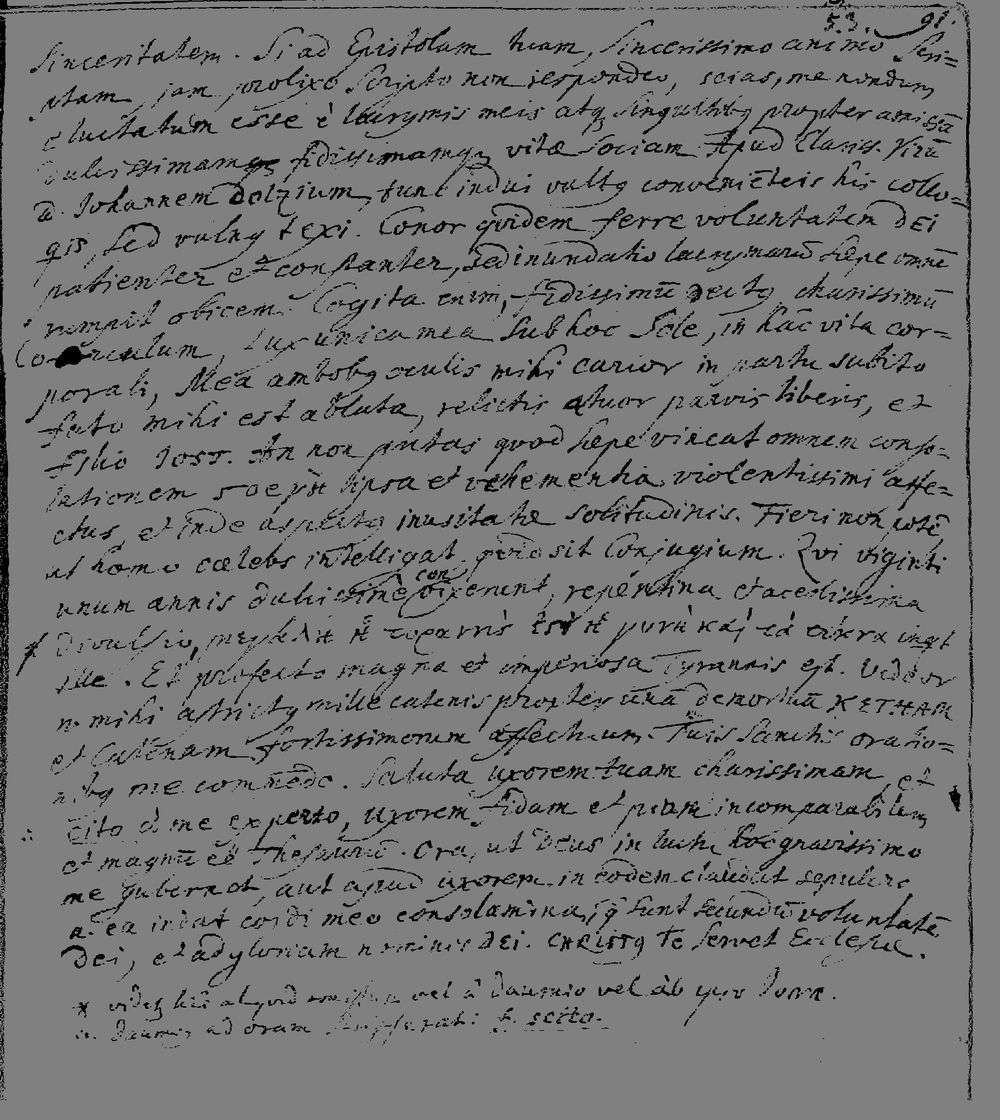 53. 91.
Sinceritatem. Si ad Epistolam tuam, sincerissimo animo scri=
ptam, jam prolixo scripto non respondeo, scias, me nondum
eluctatum esse è lacrymis meis atq singultibq propter amissā
dulcissimamq fidissimamq vitæ sociam. Apud Clariss. Virū
D. Johannem Dolzium, tunc indui vultq convenieteis his collo=
qiis, sed vulnq texi. Conor qvidem ferre voluntatem DEI
patienter et constanter, sed inundatio lacrymarū sæpe omnē
rumpit obicem. Cogita enim, fidissimū pectq, charissimū
Corculum, Lux unica mea sub hoc Sole, in hac vita cor=
porali, Mea ambobq oculis mihi carior in partu subito
fato mihi est ablata, relictis qtuor parvis liberis, et
filio. An non putas qvod sæpe vincat omnem conso=
lationem ipsa et vehementia violentissimi affe=
ctus, et inde aspectq inusitatæ solitudinis. Fieri non potē
ut homo cœlebs intelligat qvid sit Conjugium. Qvi viginti
unum annis dulcissimè convixerunt, repentina et acerbissima
divulsio, ἡ τυραννὶς γυνὴ καὶ τὰ τέκνα inqt
ille. Et profecto magna et imperiosa Tyrannis est. Videor
n. mihi astrictq mille catenis propter unā demortuā KETHAM
et Catenam fortissimorum affectuum. Tuis sanctis oratio=
nibq me commēdo. Saluta uxorem tuam charissimam, et
cito à me experto, uxorem fidam et piam incomparabilem
et magnū eē Thesaurū. Ora, ut Deus in luctu hoc gravissimo
me gubernet, aut apud uxorem in eodem claudat sepulcro,
a. ea indat cordi meo consolamina, q sunt secundū voluntatē
Dei, et ad gloriam nominis DEI. CHRISTq Te servet Ecclesiæ.
* vel à Daumio vel ab ipso
a. Daumiq ad oram